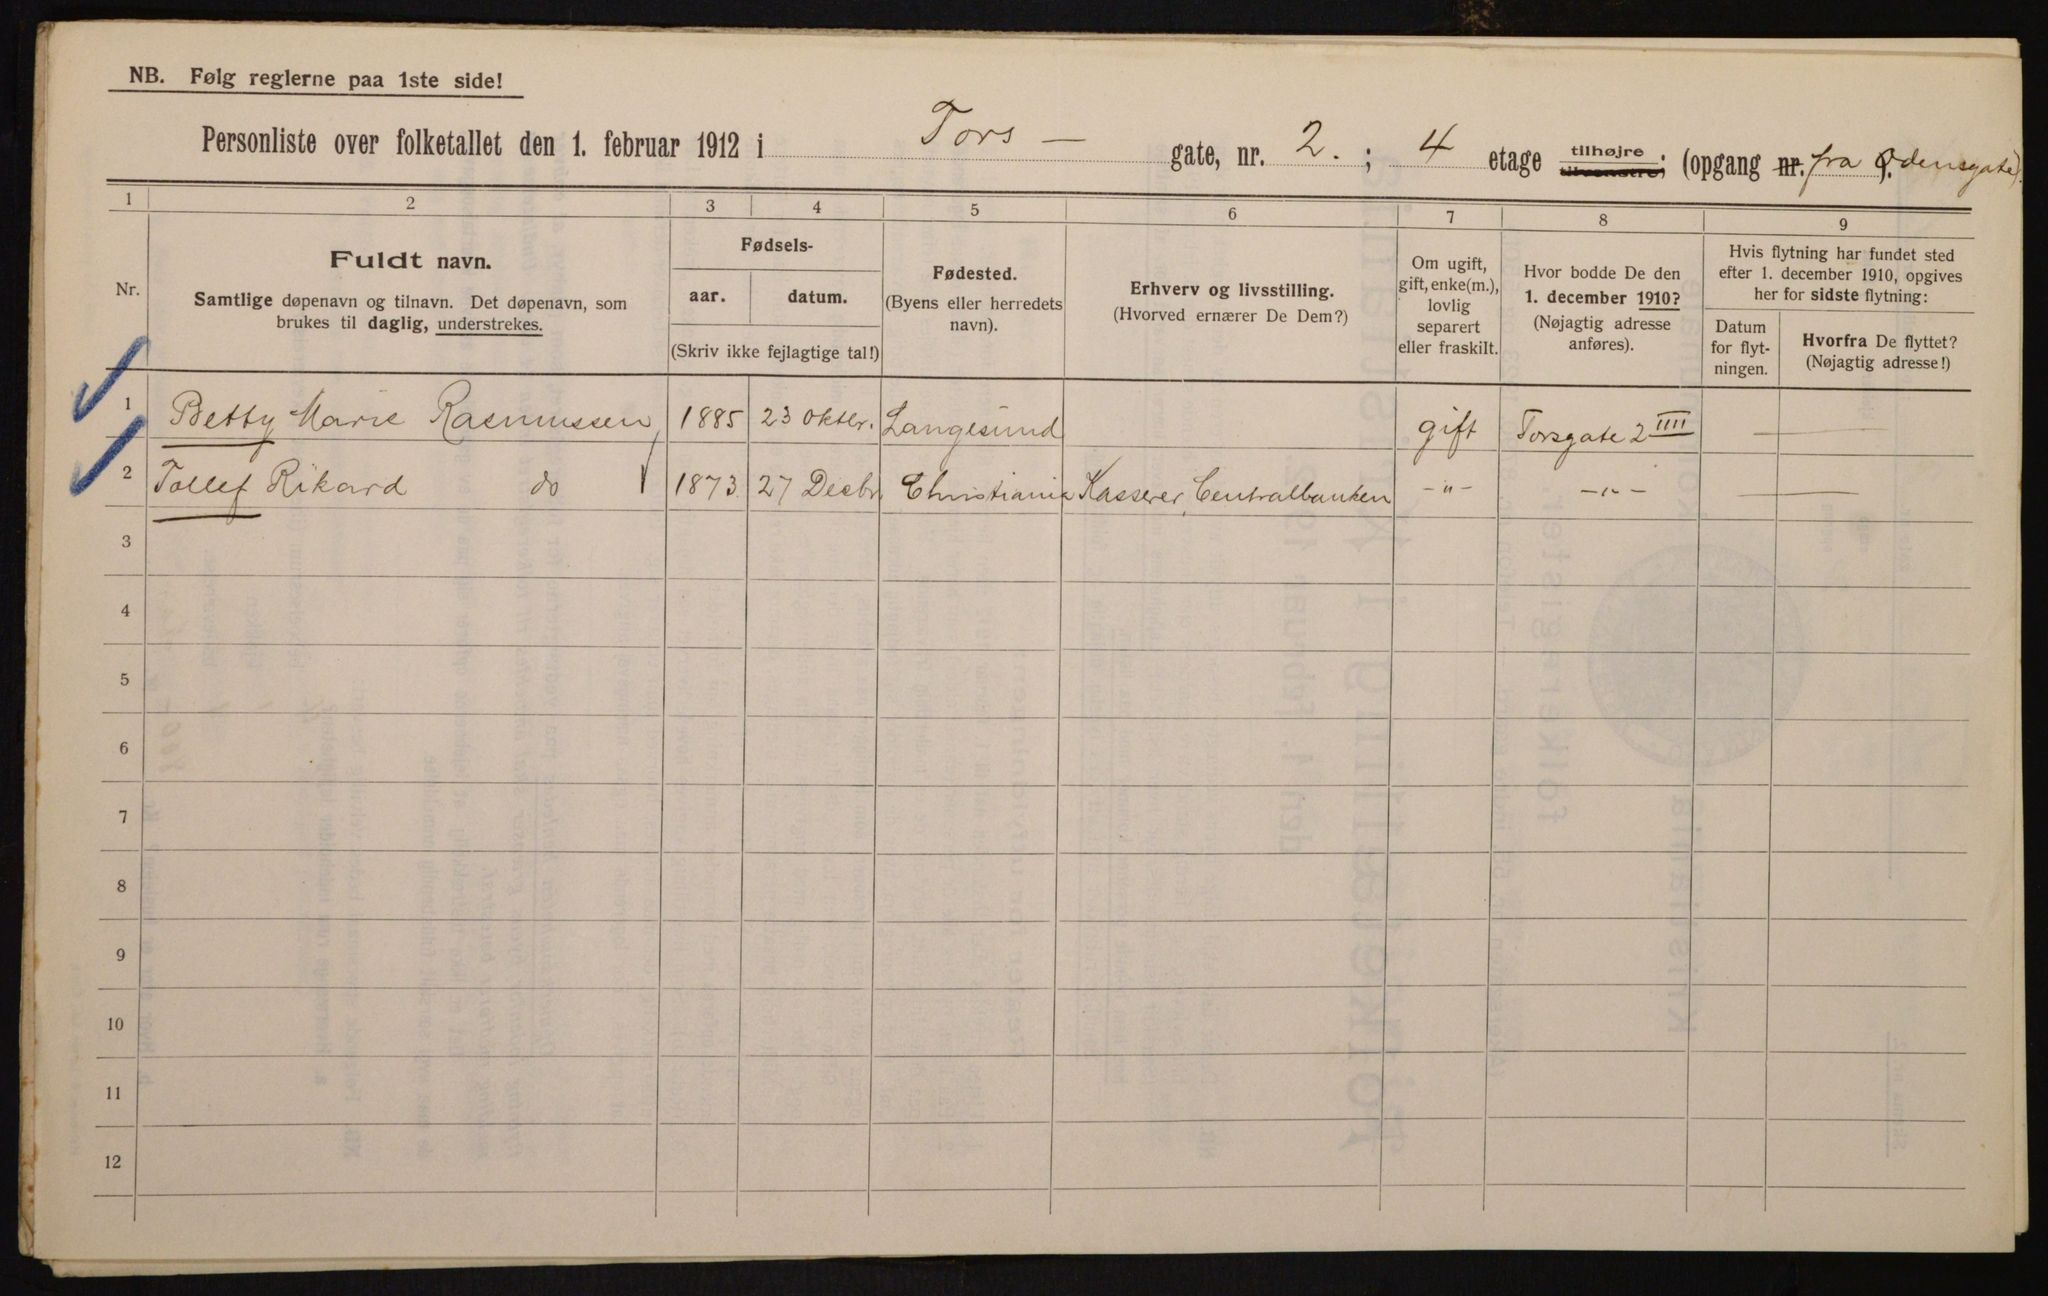 NB. Følg reglerne paa 1ste side!
Personliste over folketallet den 1. februar 1912 i Tors — gate, nr. 2. ; 4 etage tilhøjre tilvenstre; (opgang nr. fra Odensgate).
1 2 3 4 5 6 7 8 9
Nr.
Fuldt navn.
Samtlige døpenavn og tilnavn. Det døpenavn, som
brukes til daglig, understrekes.
Fødsels-
aar. datum.
(Skriv ikke fejlagtige tal!)
Fødested.
(Byens eller herredets
navn).
Erhverv og livsstilling.
(Hvorved ernærer De Dem?)
Om ugift,
gift, enke(m.),
lovlig
separert
eller fraskilt.
Hvor bodde De den
1. december 1910?
(Nøjagtig adresse
anføres).
Hvis flytning har fundet sted
efter 1. december 1910, opgives
her for sidste flytning:
Datum
for flyt-
ningen.
Hvorfra De flyttet?
(Nøjagtig adresse!)
1 Betty Marie Rasmussen 1885 23 oktbr. Langesund gift Torsgate 2 IIII —
2 Tollef Rikard do 1873 27 Decbr Christiania Kasserer, Centralbanken -"- -"- —
3
4
5
6
7
8
9
10
11
12